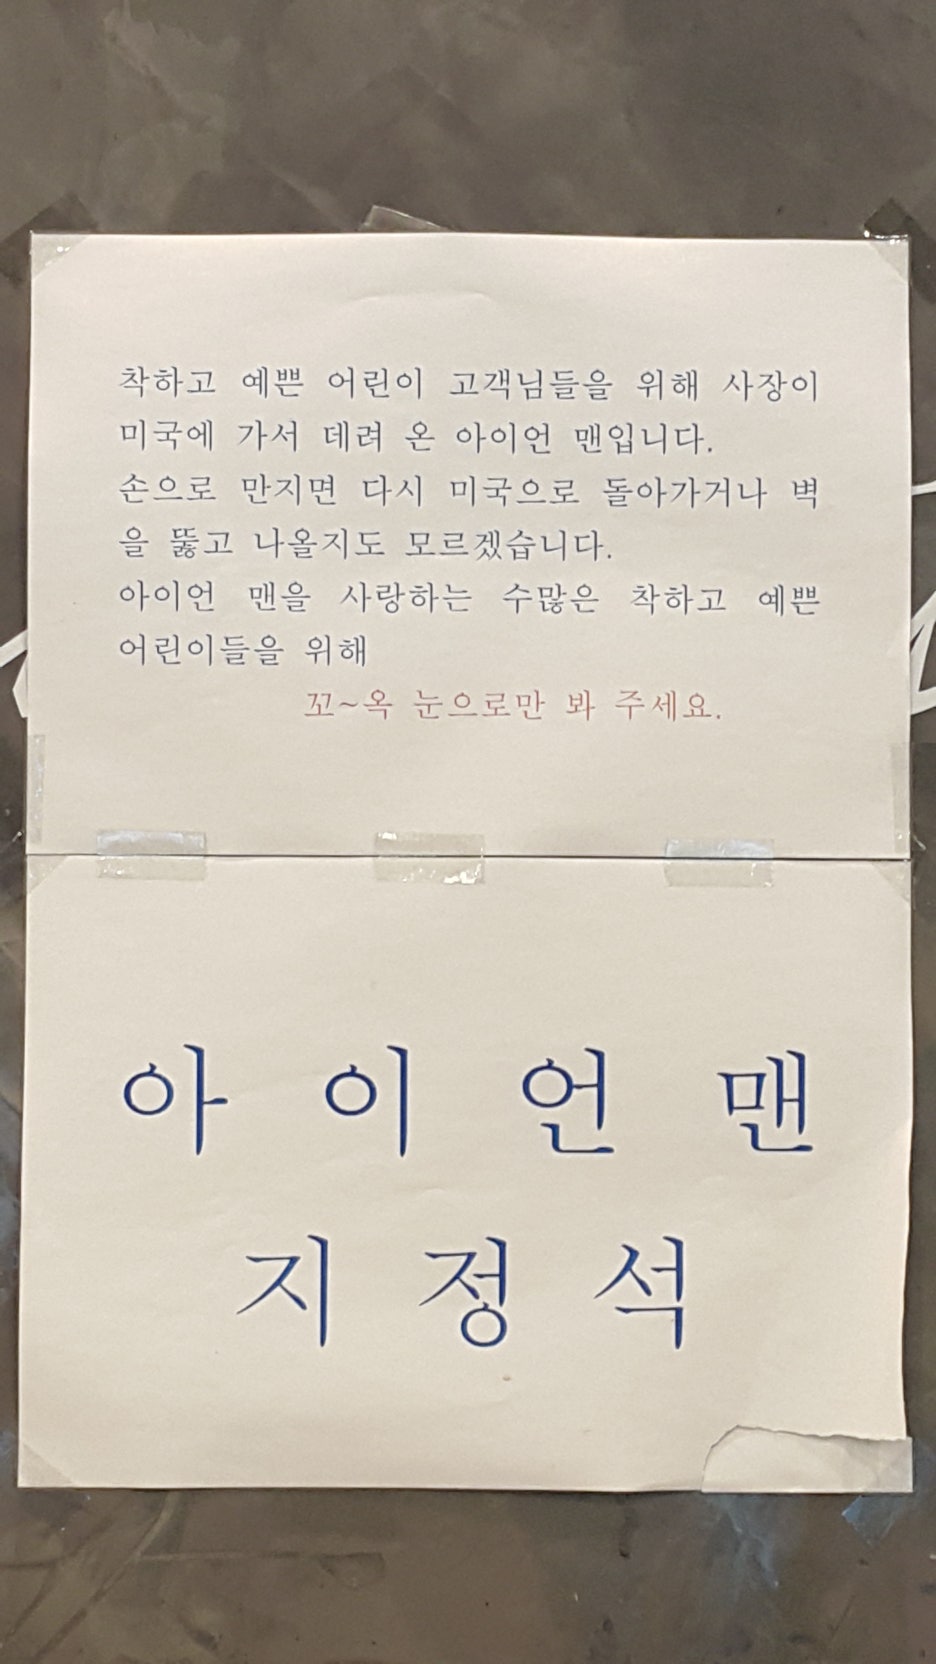 착하고 예쁜 어린이 고객님들을 위해 사장이
미국에 가서 데려 온 아이언 맨입니다.
손으로 만지면 다시 미국으로 돌아가거나 벽
을 뚫고 나올지도 모르겠습니다.
아이언 맨을 사랑하는 수많은 착하고 예쁜
어린이들을 위해
꼬~옥 눈으로만 봐 주세요.
아 이 언 맨
지 정 석